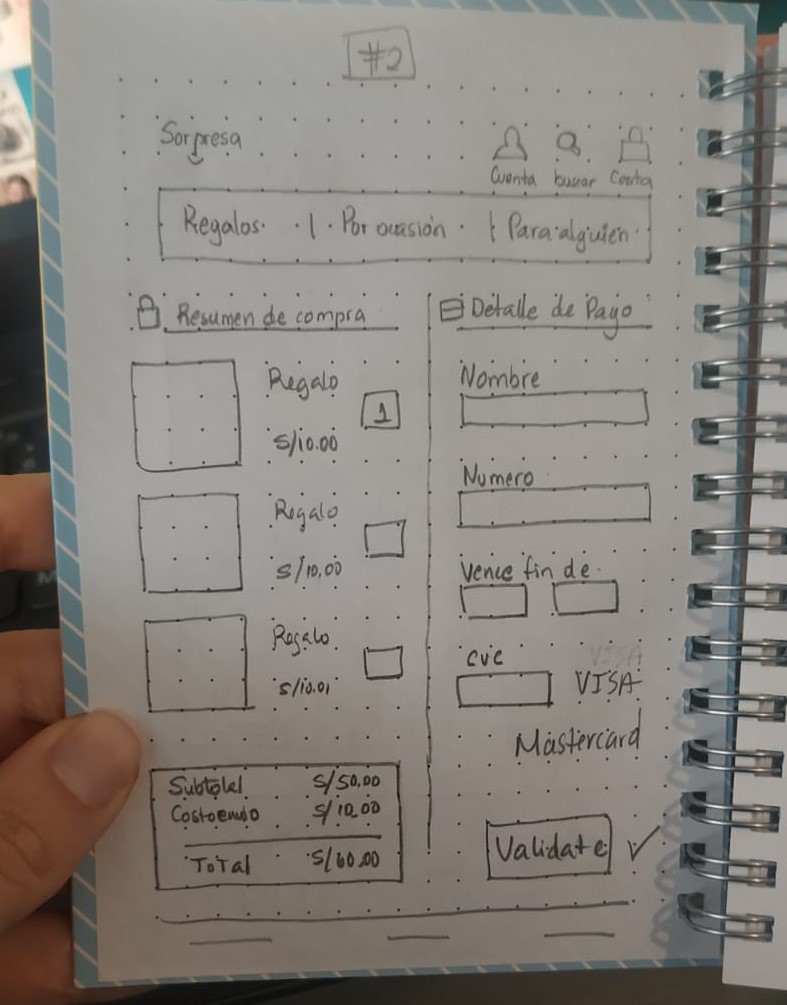 #2
Sorpresa
Cuenta buscar Cesta
Regalos | Por ocasión | Para alguien
Resumen de compra
Regalo
1
S/10.00
Regalo
S/10.00
Regalo
S/10.01
Subtotal S/50.00
Costo envio S/10.00
Total S/60.00
Detalle de Pago
Nombre
Numero
Vence fin de
CVC
VISA
VISA
Mastercard
Validate ✓